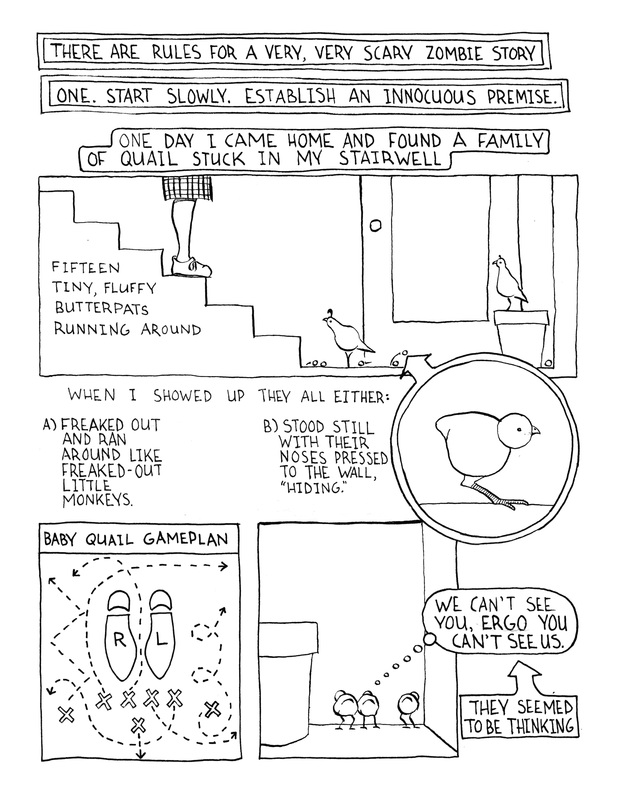 THERE ARE RULES FOR A VERY, VERY SCARY ZOMBIE STORY
ONE. START SLOWLY. ESTABLISH AN INNOCUOUS PREMISE.
ONE DAY I CAME HOME AND FOUND A FAMILY
OF QUAIL STUCK IN MY STAIRWELL
FIFTEEN
TINY, FLUFFY
BUTTERPATS
RUNNING AROUND
WHEN I SHOWED UP THEY ALL EITHER:
A) FREAKED OUT
AND RAN
AROUND LIKE
FREAKED-OUT
LITTLE
MONKEYS.
B) STOOD STILL
WITH THEIR
NOSES PRESSED
TO THE WALL,
"HIDING."
BABY QUAIL GAMEPLAN
R L
X X X X
X X X
WE CAN'T SEE
YOU, ERGO YOU
CAN'T SEE US.
THEY SEEMED
TO BE THINKING